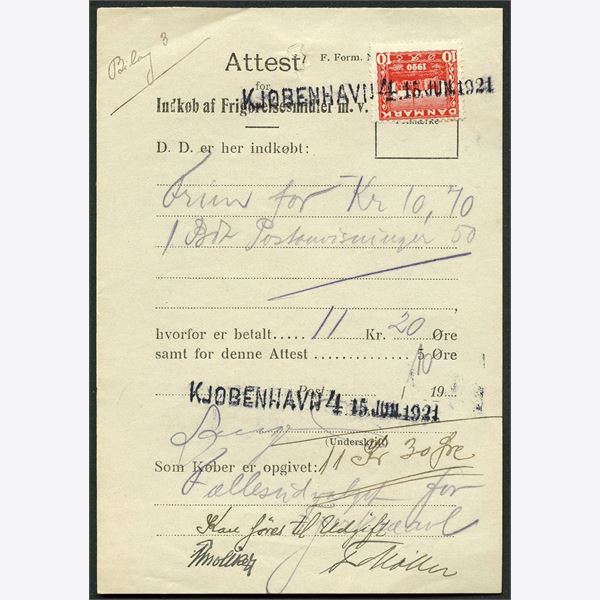 Bilag 3
Attest F. Form. N
for
Indkøb af Frigørelsesmidler m. v.
KJØBENHAVN 4. 15 JUN. 1921
10 1920 10
DANMARK
D. D. er her indkøbt:
Frim for Kr 10,70
1 Bdt Postanvisninger 50
hvorfor er betalt..... 11 Kr. 20 Øre
samt for denne Attest 5 Øre
10
Post 19
KJØBENHAVN 4 15 JUN. 1921
(Underskrift)
Som Køber er opgivet: 11 Kr 30 Øre
Fællesudvalget for
Kan føres til Udgift
Møller